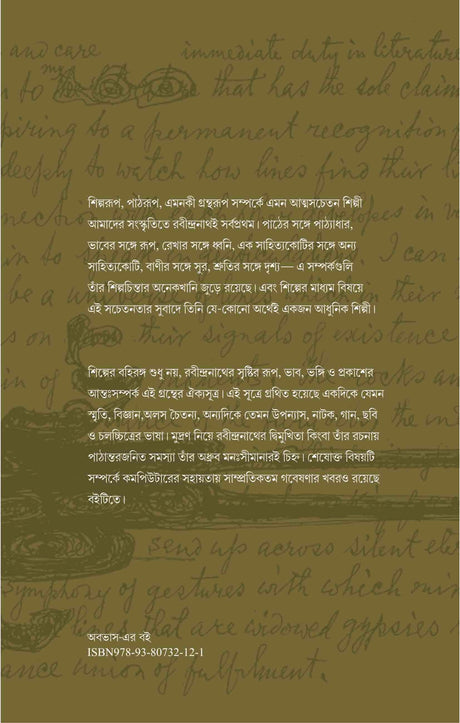 and care immediate duty in literature
to that has the sole claim
piring to a permanent recognition
deeply to watch how lines find their li
শিল্পরূপ, পাঠরূপ, এমনকী গ্রন্থরূপ সম্পর্কে এমন আত্মসচেতন শিল্পী
আমাদের সংস্কৃতিতে রবীন্দ্রনাথই সর্বপ্রথম। পাঠের সঙ্গে পাঠ্যাধার,
ভাবের সঙ্গে রূপ, রেখার সঙ্গে ধ্বনি, এক সাহিত্যকোটির সঙ্গে অন্য
সাহিত্যকোটি, বাণীর সঙ্গে সুর, শ্রুতির সঙ্গে দৃশ্য— এ সম্পর্কগুলি
তাঁর শিল্পচিন্তার অনেকখানি জুড়ে রয়েছে। এবং শিল্পের মাধ্যম বিষয়ে
এই সচেতনতার সুবাদে তিনি যে-কোনো অর্থেই একজন আধুনিক শিল্পী।
on their signals of existence
শিল্পের বহিরঙ্গ শুধু নয়, রবীন্দ্রনাথের সৃষ্টির রূপ, ভাব, ভঙ্গি ও প্রকাশের
আন্তঃসম্পর্ক এই গ্রন্থের ঐক্যসূত্র। এই সূত্রে গ্রথিত হয়েছে একদিকে যেমন
স্মৃতি, বিজ্ঞান,অলস চৈতন্য, অন্যদিকে তেমন উপন্যাস, নাটক, গান, ছবি
ও চলচ্চিত্রের ভাষা। মুদ্রণ নিয়ে রবীন্দ্রনাথের দ্বিমুখিতা কিংবা তাঁর রচনায়
পাঠান্তরজনিত সমস্যা তাঁর অধ্রুব মনঃসীমানারই চিহ্ন। শেষোক্ত বিষয়টি
সম্পর্কে কমপিউটারের সহায়তায় সাম্প্রতিকতম গবেষণার খবরও রয়েছে
বইটিতে।
send up across silent
symphony of gestures with which
lines that are widowed gypsies
অবভাস-এর বই
ISBN978-93-80732-12-1
ance union of fulfilment.